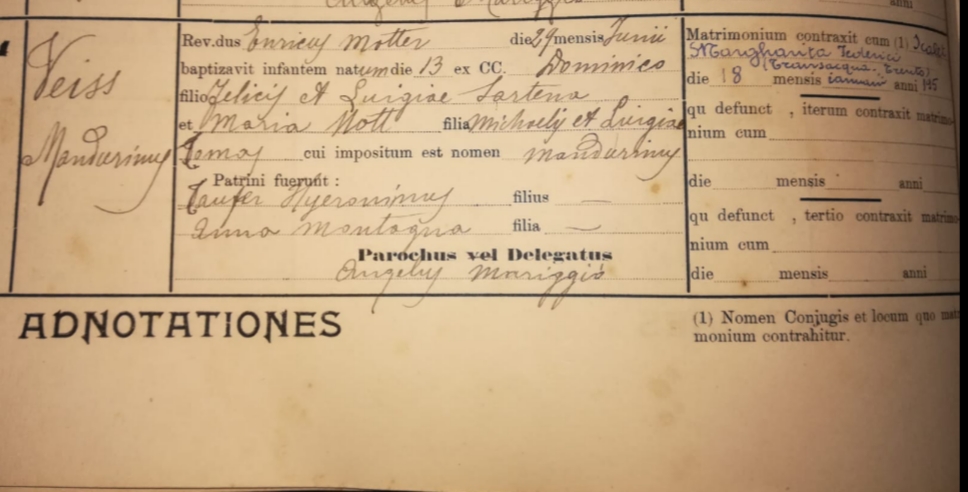 anni
Veiss
Mandurinus
Rev.dus Enricus Motter die 29 mensis Junii
baptizavit infantem natum die 13 ex CC. Dominico
filio Felicis et Luigiae Sartena
et Maria Nott filia Michaely et Luigiae
Tomas cui impositum est nomen Mandurinus
Patrini fuerunt :
Taufer Hyeronimus filius —
Anna Montagna filia —
Parochus vel Delegatus
Angelus Mariggiò
Matrimonium contraxit cum (1)
Margharita Federici
(Transacqua-Trento)
die 18 mensis ianuarii anni
qu defunct , iterum contraxit matrimo-
nium cum
die mensis anni
qu defunct , tertio contraxit matrimo-
nium cum
die mensis anni
ADNOTATIONES
(1) Nomen Conjugis et locum quo matr
monium contrahitur.